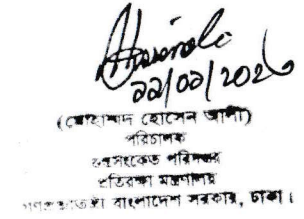 ২২/০১/২০২০
(মোহাম্মদ হোসেন আলী)
পরিচালক
গুপ্তসংকেত পরিদপ্তর
প্রতিরক্ষা মন্ত্রণালয়
গণপ্রজাতন্ত্রী বাংলাদেশ সরকার, ঢাকা।